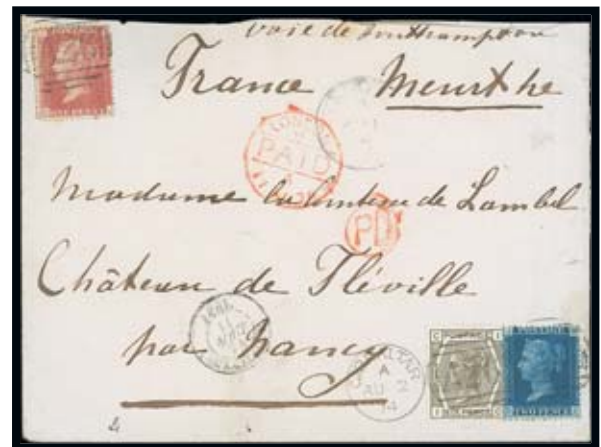 voie de Southampton
France Meurthe
PAID
Madame la Comtesse de Lambel
PD
Château de Fléville
par Nancy
GIBRALTAR
A
AU 2
74
TWO PENCE